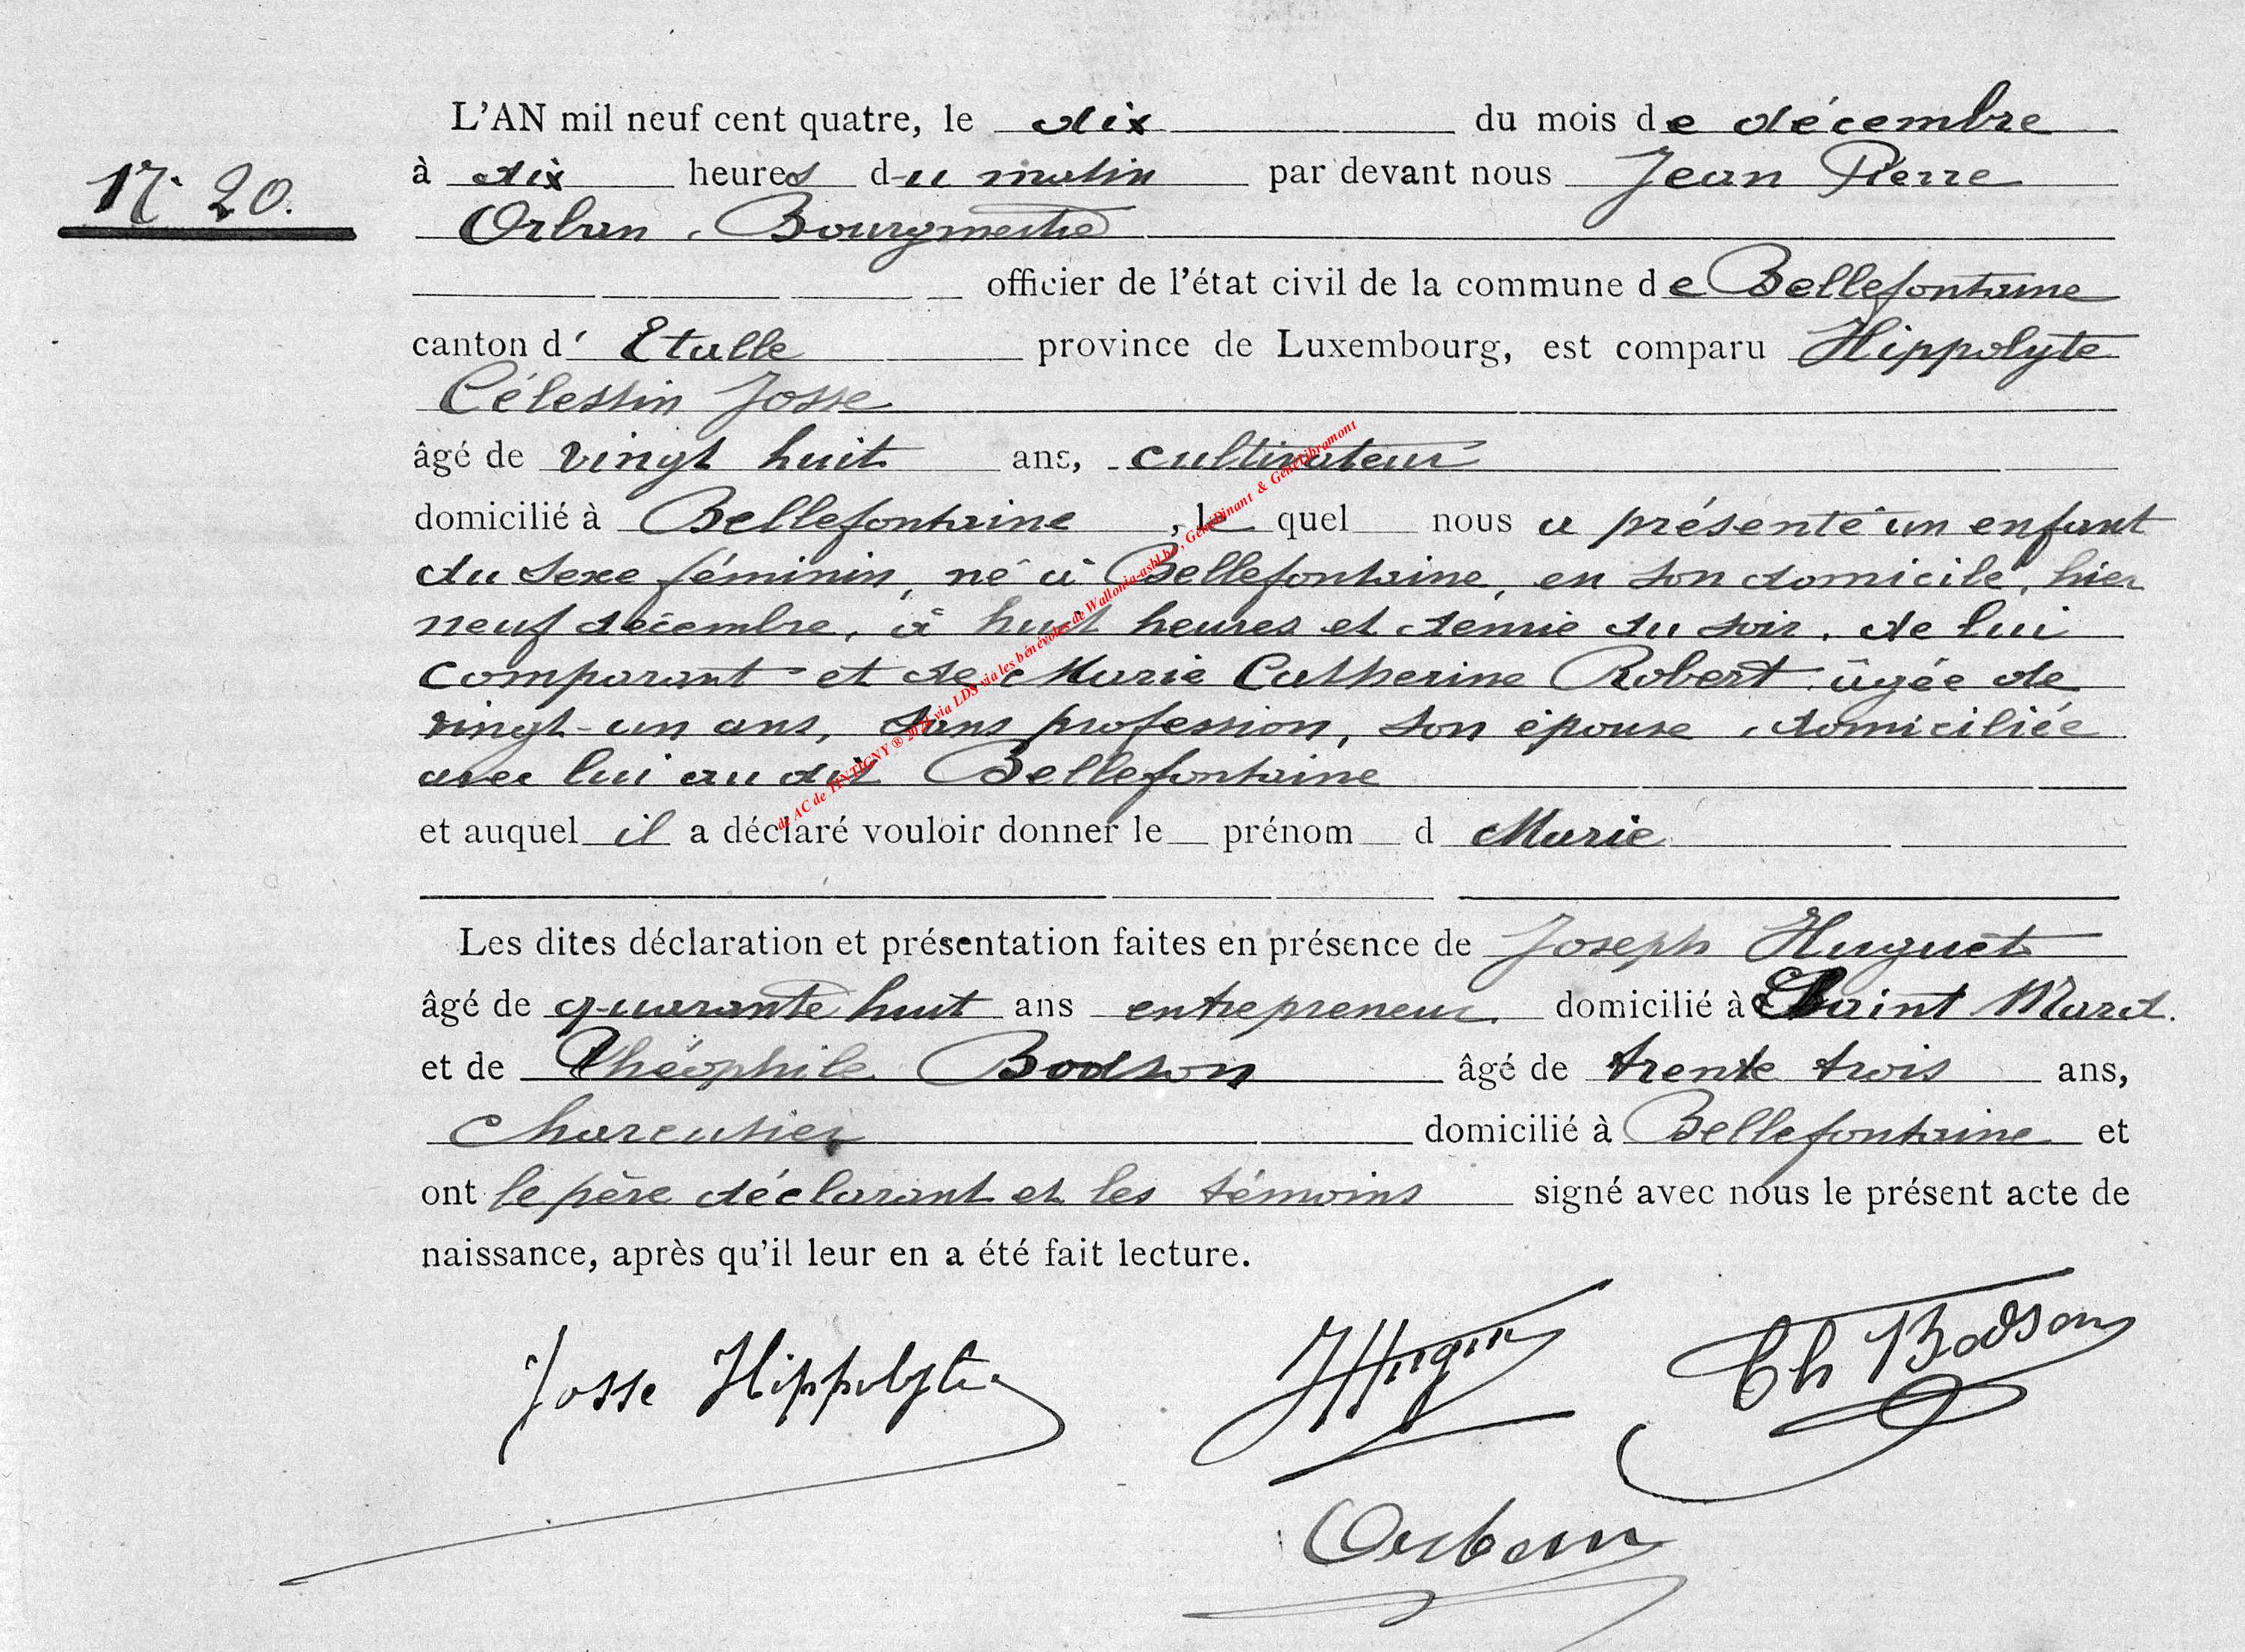 L'AN mil neuf cent quatre, le dix du mois de décembre
N° 20.
à dix heures du matin par devant nous Jean Pierre
Orban, Bourgmestre
officier de l'état civil de la commune de Bellefontaine
canton d' Etalle province de Luxembourg, est comparu Hippolyte
Célestin Josse
âgé de vingt huit ans, cultivateur
domicilié à Bellefontaine, le quel nous a présenté un enfant
du sexe féminin, né à Bellefontaine, en son domicile, hier
neuf décembre, à huit heures et demie du soir, de lui
comparant et de Marie Catherine Robert âgée de
vingt-un ans, sans profession, son épouse, domiciliée
avec lui au dit Bellefontaine
et auquel il a déclaré vouloir donner le prénom d Marie
Les dites déclaration et présentation faites en présence de Joseph Huguet
âgé de quarante huit ans entrepreneur domicilié à Saint Mard.
et de Théophile Bodson âgé de trente trois ans,
charcutier domicilié à Bellefontaine et
ont le père déclarant et les témoins signé avec nous le présent acte de
naissance, après qu'il leur en a été fait lecture.
Josse Hippolyte
Th Bodson
Orban
de AC de TINTIGNY ® via LDS via les bénévoles de Wallonia-asbl.be, GénéDinant & GénéLibramont